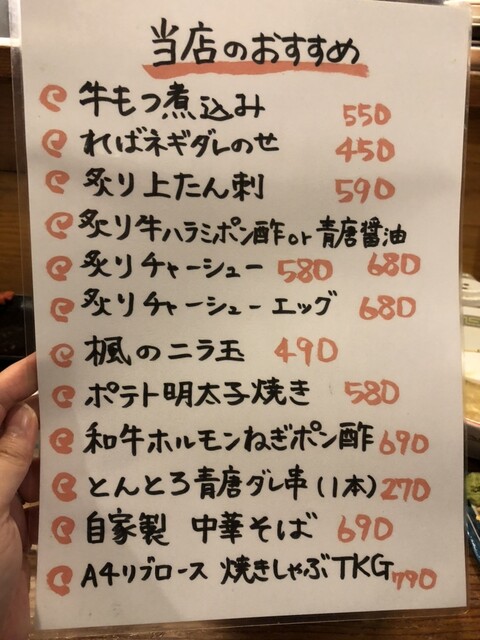 当店のおすすめ
牛もつ煮込み 550
ればネギダレのせ 450
炙り上たん刺 590
炙り牛ハラミポン酢or青唐醤油 680
炙りチャーシュー 580
炙りチャーシューエッグ 680
楓のニラ玉 490
ポテト明太子焼き 580
和牛ホルモンねぎポン酢 690
とんとろ青唐ダレ串(1本) 270
自家製 中華そば 690
A4リブロース 焼きしゃぶTKG 790